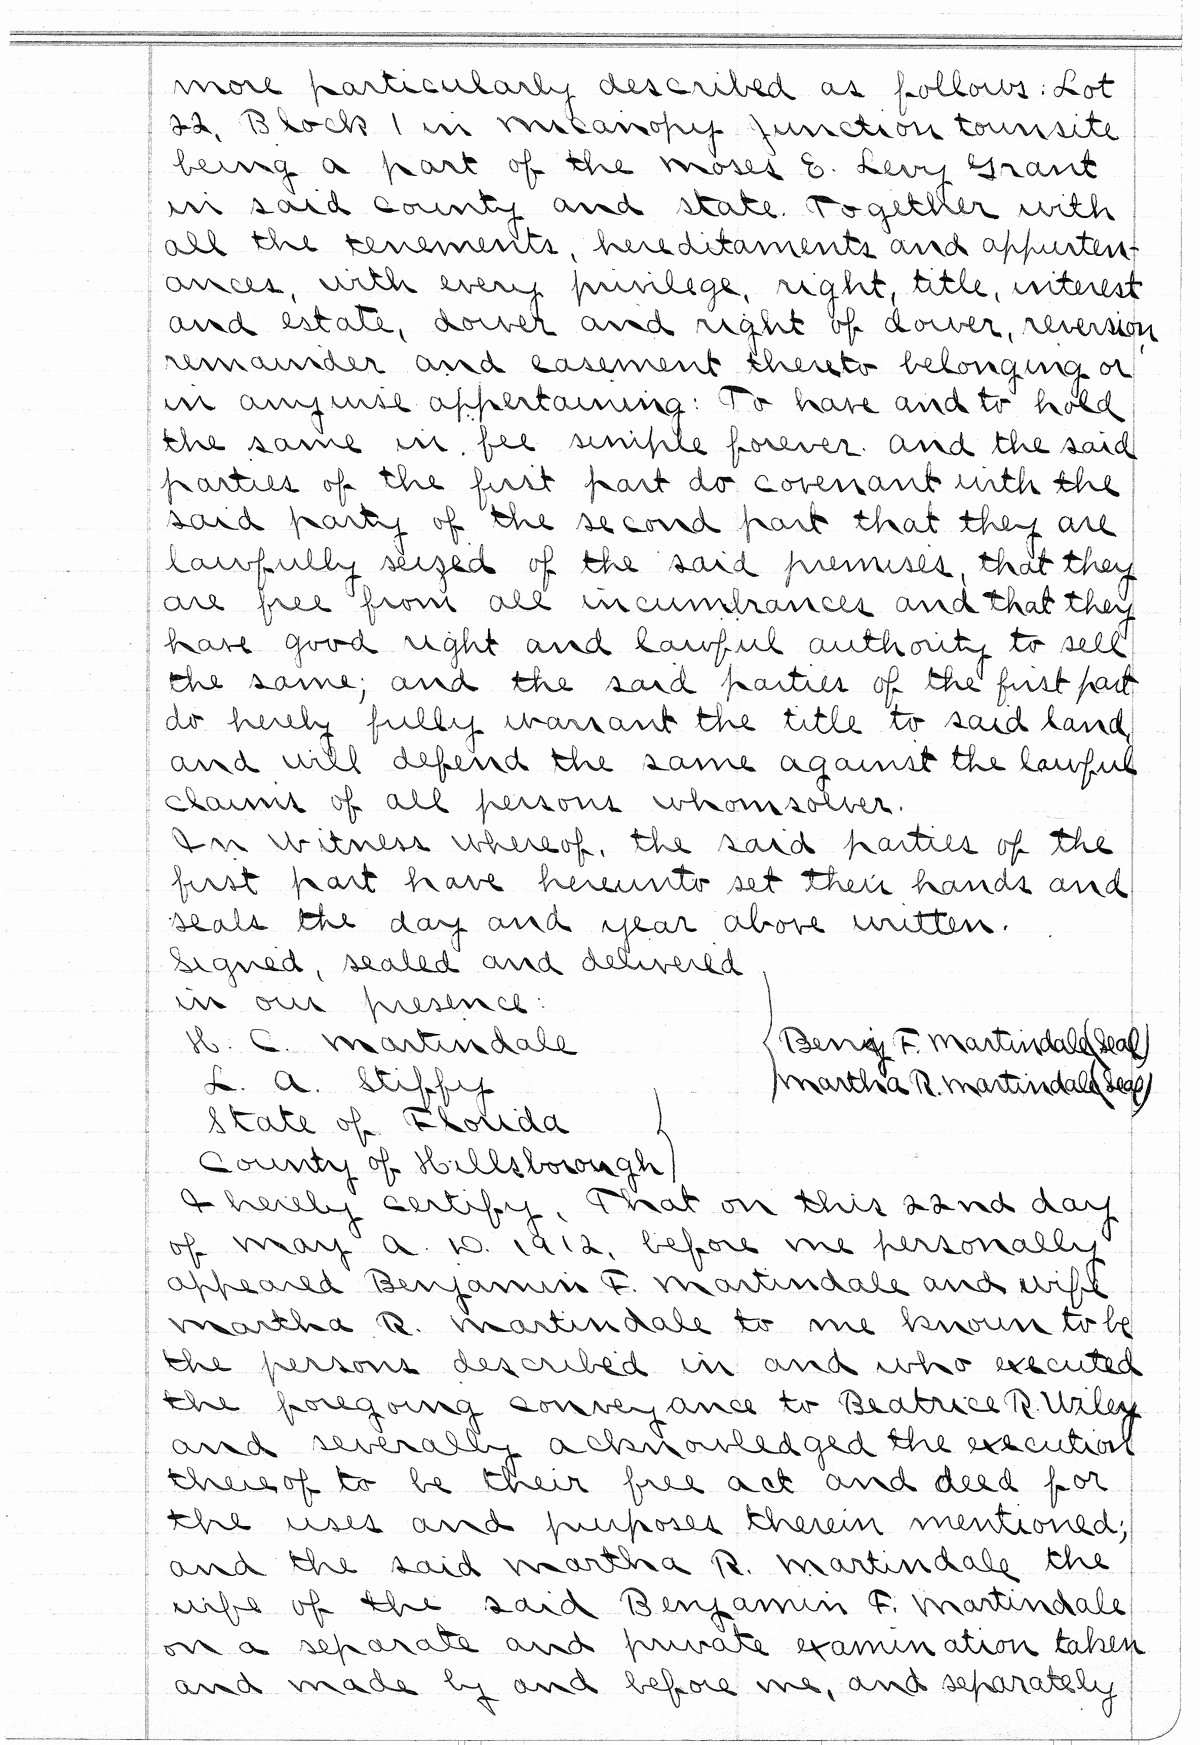 more particularly described as follows: Lot
22, Block 1 in Micanopy Junction townsite
being a part of the Moses E. Levy Grant
in said county and state. Together with
all the tenements, hereditaments and appurten-
ances, with every privilege, right, title, interest
and estate, dower and right of dower, reversion,
remainder and easement thereto belonging or
in anywise appertaining: To have and to hold
the same in fee simple forever. And the said
parties of the first part do covenant with the
said party of the second part that they are
lawfully seized of the said premises, that they
are free from all incumbrances and that they
have good right and lawful authority to sell
the same; and the said parties of the first part
do hereby fully warrant the title to said land,
and will defend the same against the lawful
claims of all persons whomsoever.
In Witness whereof, the said parties of the
first part have hereunto set their hands and
seals the day and year above written.
Signed, sealed and delivered
in our presence:
H. C. Martindale
Benj F. Martindale (Seal)
L. A. Stiffy
Martha R. Martindale (Seal)
State of Florida
County of Hillsborough
I hereby certify, That on this 22nd day
of May A. D. 1912, before me personally
appeared Benjamin F. Martindale and wife
Martha R. Martindale to me known to be
the persons described in and who executed
the foregoing conveyance to Beatrice R. Wiley
and severally acknowledged the execution
thereof to be their free act and deed for
the uses and purposes therein mentioned;
and the said Martha R. Martindale the
wife of the said Benjamin F. Martindale
on a separate and private examination taken
and made by and before me, and separately